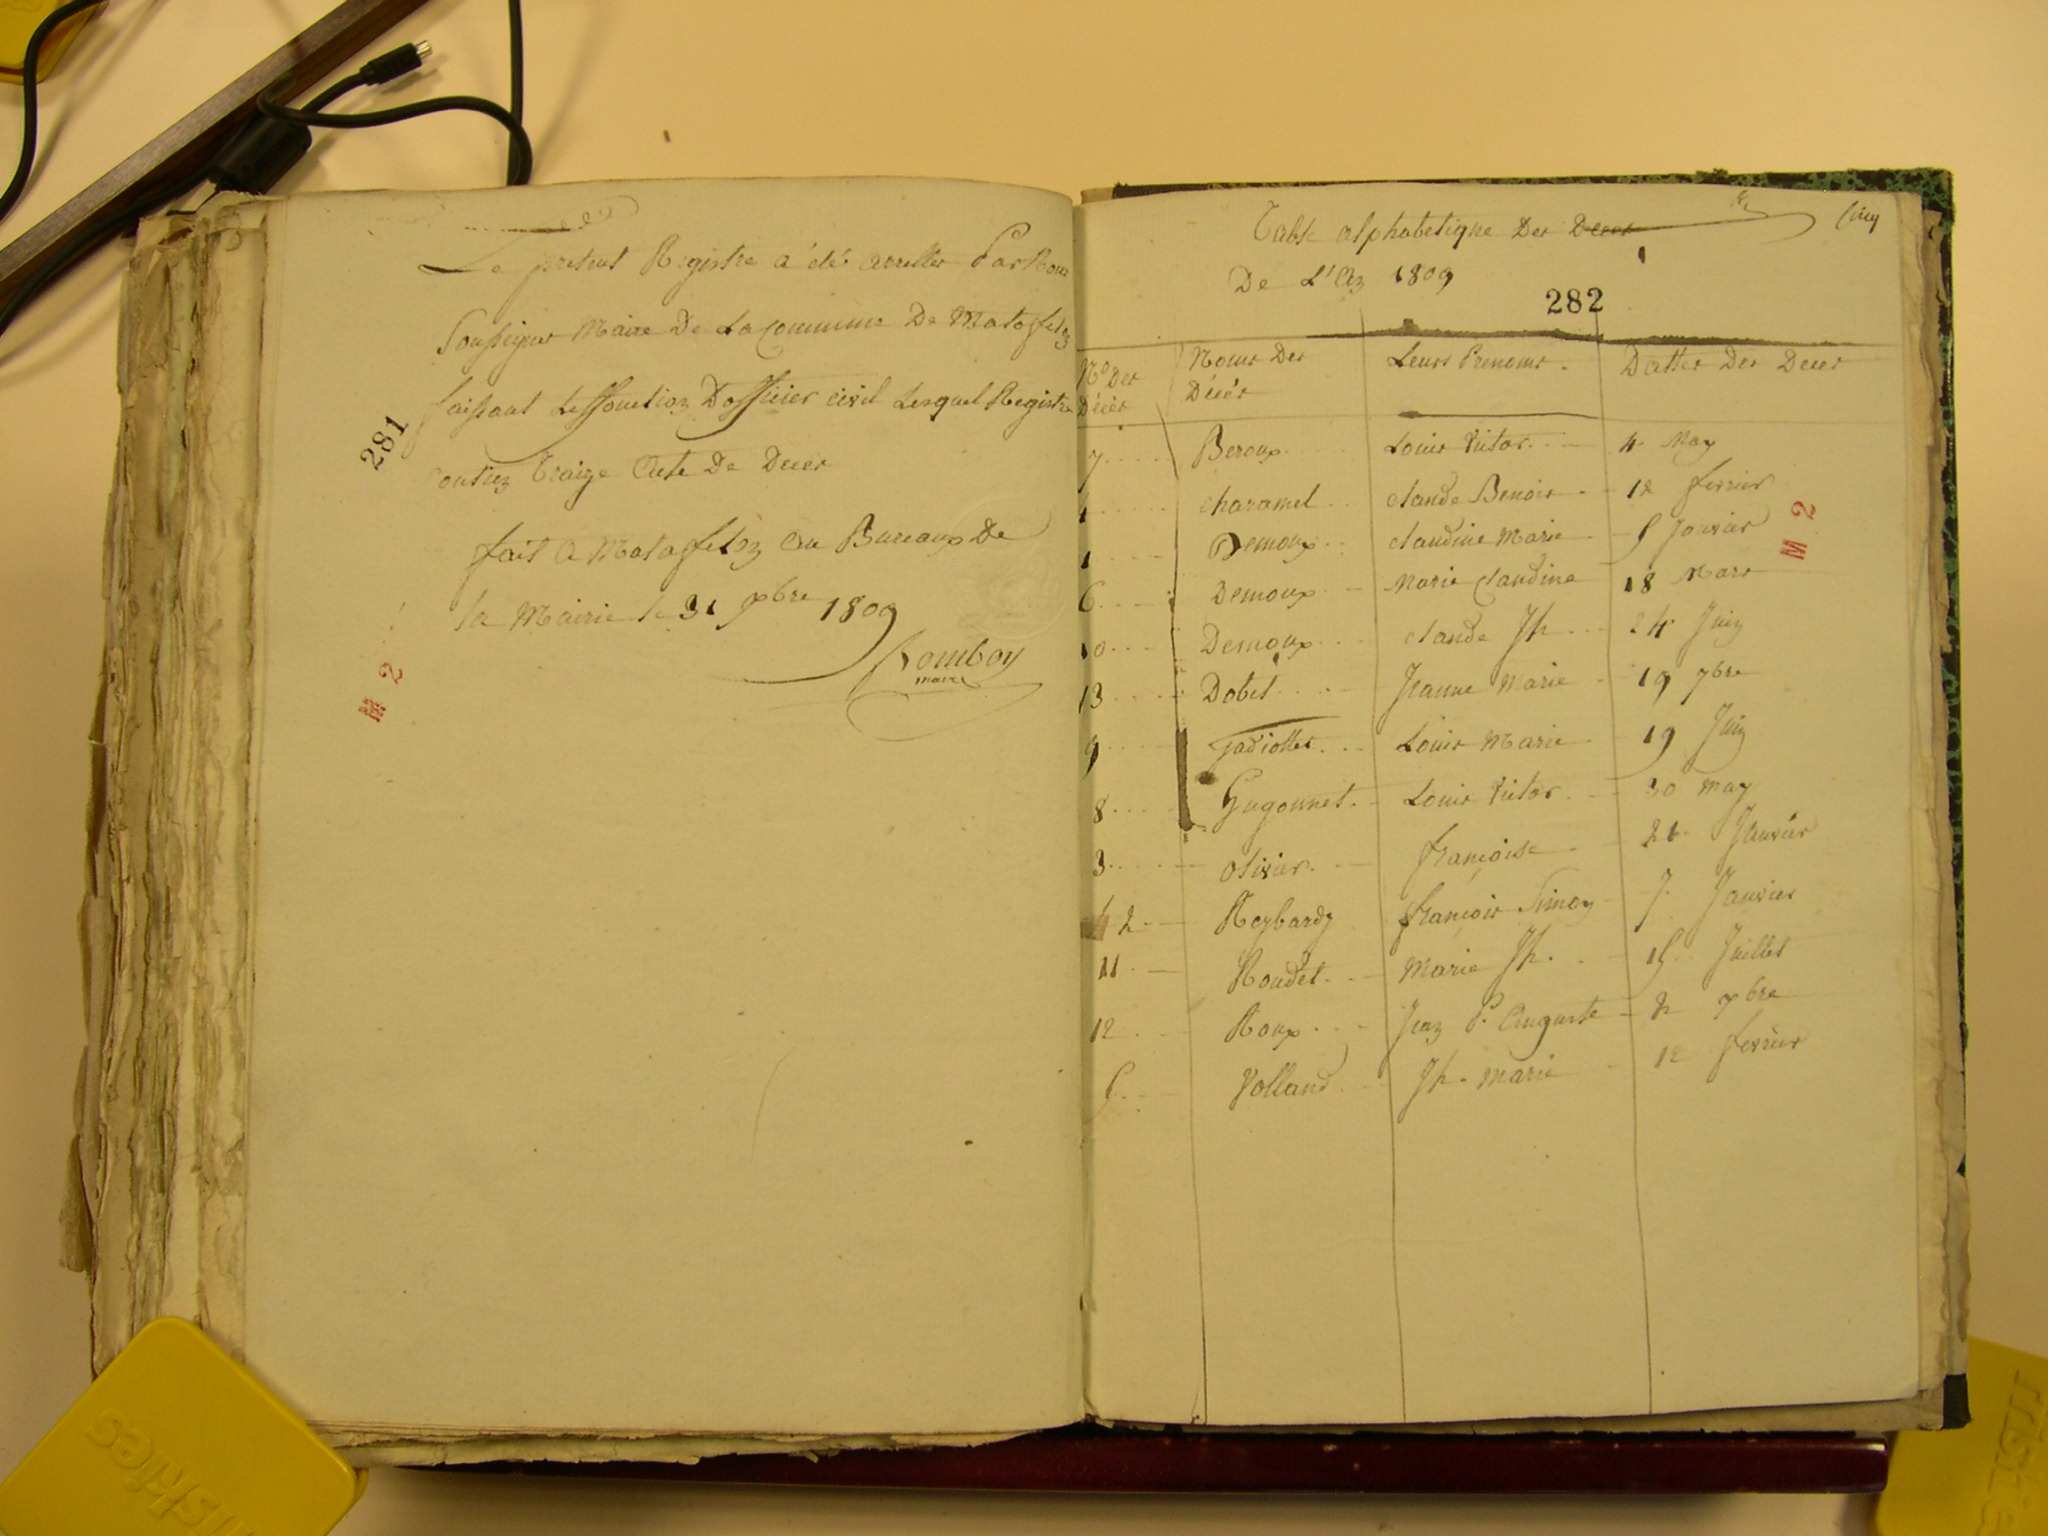 Le present Registre a été arretter Par Nous
Soussigner Maire De La Commune De Matafelon
faissant Les fonction Dofficier civil Lesquel Registre
contien Traize Acte De Deces
fait a Matafelon au Bureaux De
la Mairie le 31 xbre 1809
maire
281
M 2
Table alphabetique Des Deces
De L'An 1809
282
No Des Décès Noms Des Décès Leurs Prenoms Dattes Des Deces
7 Beroux Louis Victor 4 May
4 Charamel Claude Benois 12 fevrier
1 Demoux Claudine Marie 5 Janvier
6 Demoux Marie Claudine 18 Mars
10 Demoux Claude Jh 24 Juin
13 Dobet Jeanne Marie 19 9bre
9 Gadiollet Louis Marie 19 Juin
8 Gugonnet Louis Victor 30 May
3 Olivier françoise 21 Janvier
2 Reybard françois Simon 7 Janvier
11 Roudet Marie Jh 15 Juillet
12 Roux Jean P. Auguste 2 7bre
5 Volland Jh Marie 12 fevrier
M 2